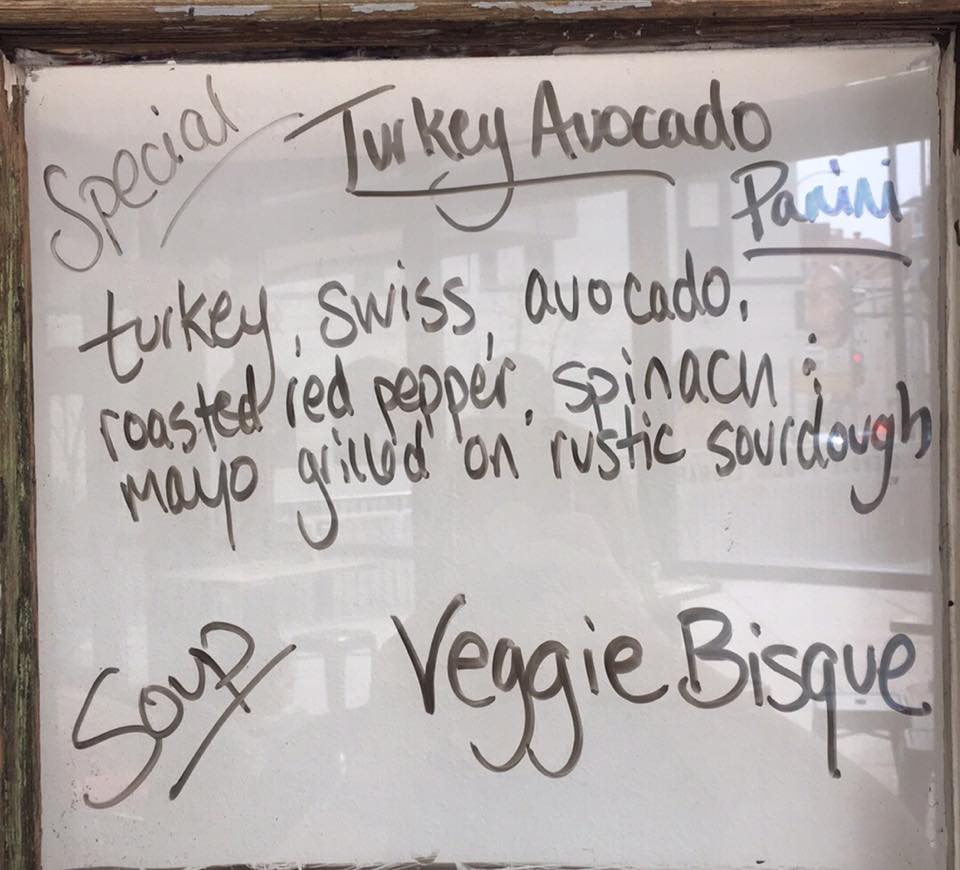 Special Turkey Avocado
Panini
turkey, swiss, avocado,
roasted red pepper, spinach &
mayo grilled on rustic sourdough
Soup Veggie Bisque